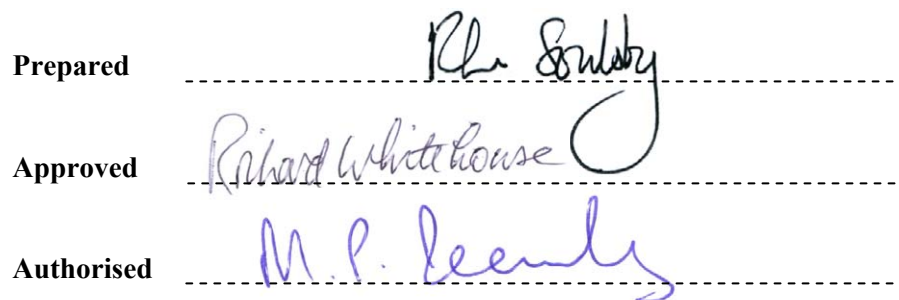 Prepared Soulsby
Approved Richard Whitehouse
Authorised M. P.